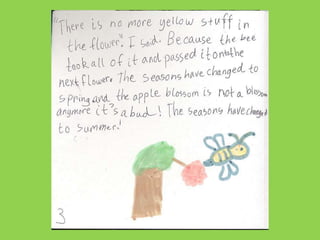 "There is no more yellow stuff in
the flower". I said. Because the bee
took all of it and passed it onto the
next flower. The seasons have changed to
spring and the apple blossom is not a blossom
anymore it's a bud! The seasons have changed
to summer!
3